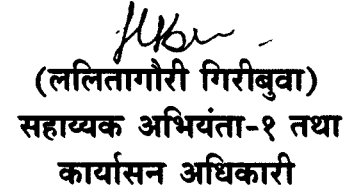 (ललितागौरी गिरीबुवा)
सहाय्यक अभियंता-१ तथा
कार्यासन अधिकारी